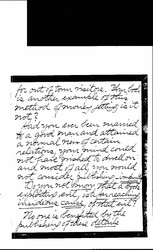 for out of town visitors. This book
is another example of this
method of money getting is it
not?
Had you ever been married
to a good man and attained
a normal view of certain
relations, your mind could
not have wished to dwell on
and most of all you would
not consider publishing
Do you not know that a book
exhibited sort, is a
insidious cause of that evil?
No one is benefited by the
publishing of these details